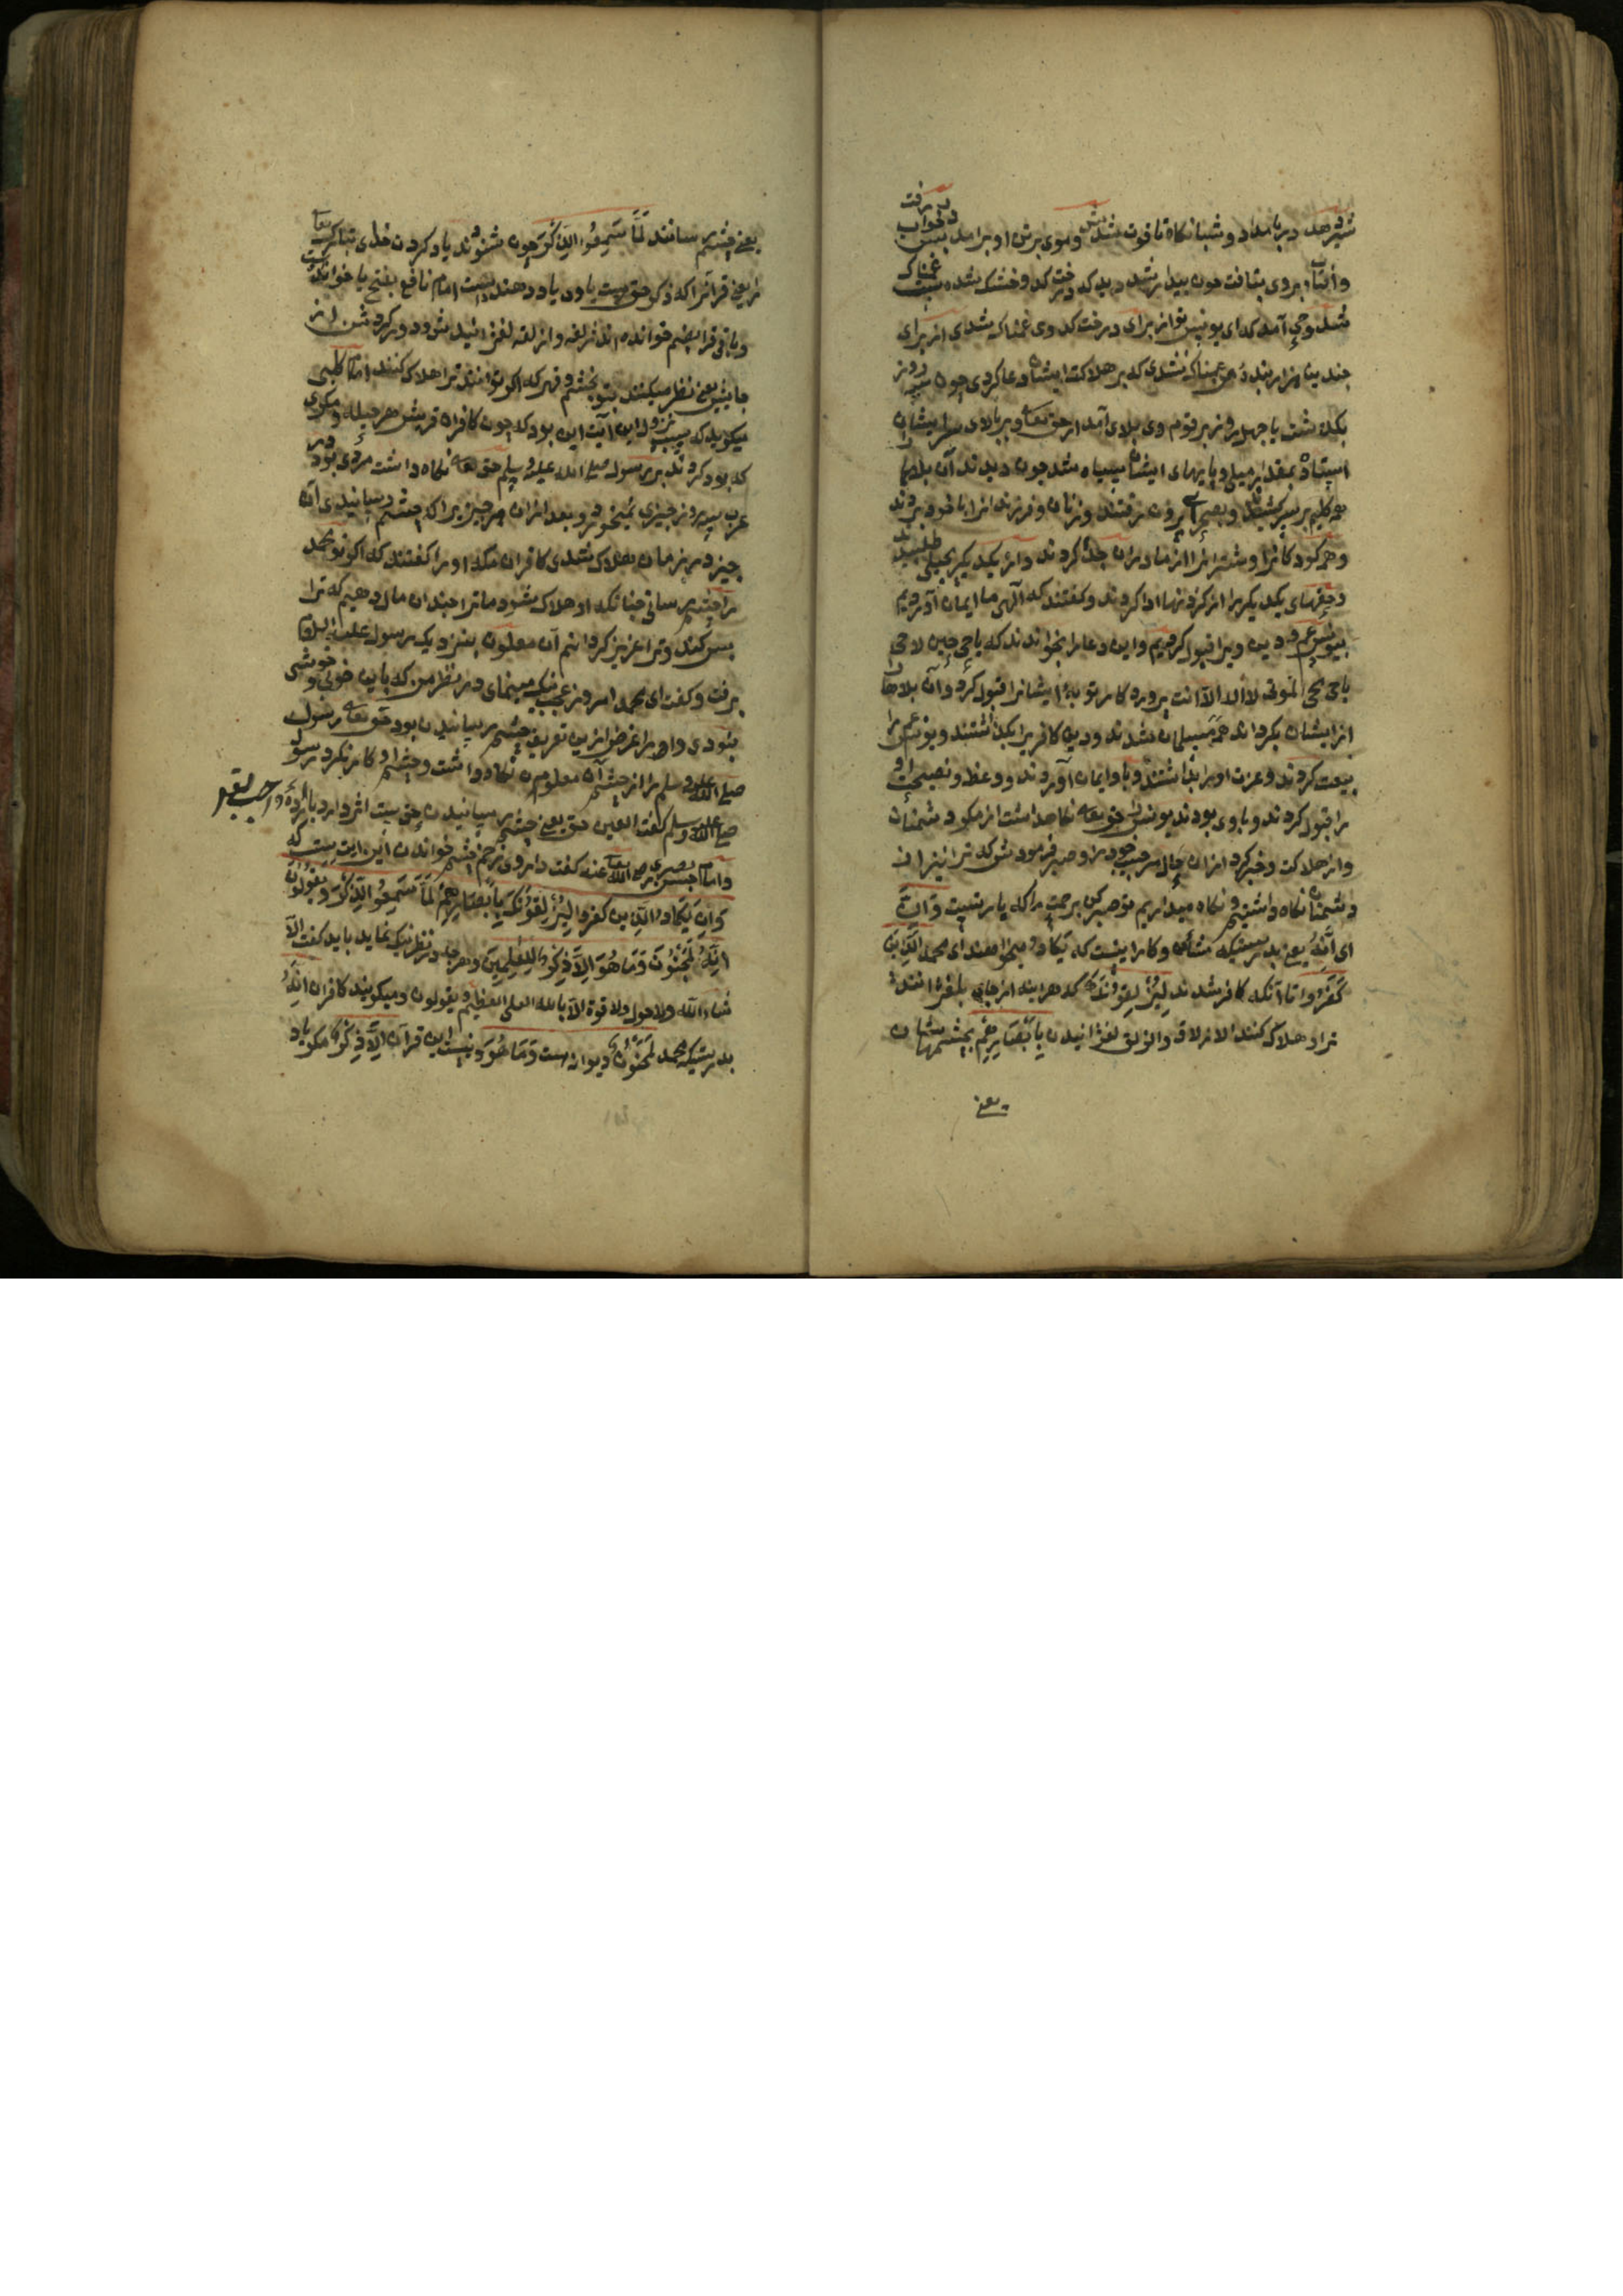 شیر دهد در بامداد و شبانگاه تا قوت شدش و موی بر تن او برآمد پس در خواب رفت
و آفتاب بروی بتافت چون بیدار شد دید که درخت کدو خشک شده غمناک
شد وحی آمد که ای یونس تو از برای درخت کدوی غمناک شدی از برای
چندین هزار بندهٔ من غمناک نشدی که بر هلاکت ایشان دعا کردی چون سه روز
بگذشت یا چهل روز بر قوم وی بلای آمد از حق تعا و بر بالای سر ایشان
استاد بمقدار میلی و بامهای ایشان سیاه شد چون دیدند آن بلا را
همه کلیم بر سر کشیدند و بصحرای برون رفتند و زنان و فرزندانرا با خود بردند
و همه کودکانرا و شترانرا از مادران جدا کردند و از یکدیگر بحلی طلبیدند
و حقهای یکدیگر را از کردنها ادا کردند و گفتند که الهی ما ایمان آوردیم
بیونس عم و دین ویرا قبول کردیم و این دعا را بخواندند که یا حی حین لا حی
یا حی محی الموتی لا اله الا انت پروردکار توبهٔ ایشانرا قبول کرد و آن بلاها را
از ایشان بکردانید همه مسلمان شدند و دین کافری را بگذاشتند و یونس عم را
بیعت کردند و عزت او را بداشتند و با او ایمان آوردند و وعظ و نصیحت او
را قبول کردند و با وی بودند یونس را حق تعا نکاهداشت از مکر دشمنان
و از هلاکت و خبر کرد از آن حال مر حبیب خود را و صبر فرمودش که ترا نیز از
دشمنان نکاه داشتیم و نکاه میداریم تو صبر کن بر حمت را که یار تست وَاِنْ
ای اَنَّهُ یعنی بدرستیکه شأن و کار اینست که یَکَادُ میخواهند ای محمد الَّذِینَ
کَفَرُوا آنانکه کافر شدند لَیُزْلِقُونَکَ که هر اینه از جای بلغزانند
ترا و هلاک کنند الازلاق و الزلق لغزانیدن بِاَبْصَارِهِمْ بچشمهاشان
یعنی
یعنی چشم رسانند لَمَّا سَمِعُوا الذِّکْرَ چون شنوند یاد کردن خدای تبارک و تعا
را یعنی قرانرا که ذکر حق است یا ود یاد دهنده است امام نافع بفتح یا خوانده است
و باقی قرا بضم خوانده اند زلقه و ازلقه لغزانید شود و ورکردش از
جایش یعنی نظر میکنند بتو بخشم و قهر که اکر توانند ترا هلاک کنند امام کلبی
میکوید که سبب نزول این آیت این بود که چون کافران قریش هر حیله و مکری
که بود کردند بر رسول صلی الله علیه و سلم حق تعا نکاه داشت مردی بود در
عرب سه روز چیزی نمیخورد و بعد از آن هر چیز را که چشم رسانیدی آن
چیز در زمان هلاک شدی کافران مکه او را گفتند که اکر تو محمد
را چشم رسانی چنانکه او هلاک شود ما ترا چندان مال دهیم که ترا
بس کند و ترا عزیز کردانیم آن ملعون بنزدیک رسول علیه السلام
برفت و گفت ای محمد امروز عجب نیک مینمای در نظر من که باین خوبی و خوشی
نبودی و او را غرض ازین تعریف چشم رسانیدن بود حق تعا رسول
صلی الله علیه و سلم را از چشم آن ملعون نکاه داشت و چشم او کار نکرد رسول
صلی الله علیه و سلم گفت العین حق یعنی چشم رسانیدن حق است اثر دارد باراده واجب تعا
و امام حسن بصری رضی الله تعا عنه گفت داروی زخم چشم خواندن این ایت است که
وَاِنْ یَکَادُ الَّذِینَ کَفَرُوا لَیُزْلِقُونَکَ بِاَبْصَارِهِمْ لَمَّا سَمِعُوا الذِّکْرَ وَیَقُولُونَ
اِنَّهُ لَمَجْنُونٌ وَمَا هُوَ اِلَّا ذِکْرٌ لِلْعَالَمِینَ و هرچه در نظر نیک نماید باید گفت الا
شاء الله ولا حول ولا قوة الا بالله العلی العظیم و یقولون و میکویند کافران اِنَّهُ
بدرستیکه محمد لَمَجْنُونٌ دیوانه است وَمَا هُوَ و نیست این قرآن اِلَّا ذِکْرٌ مکر یاد